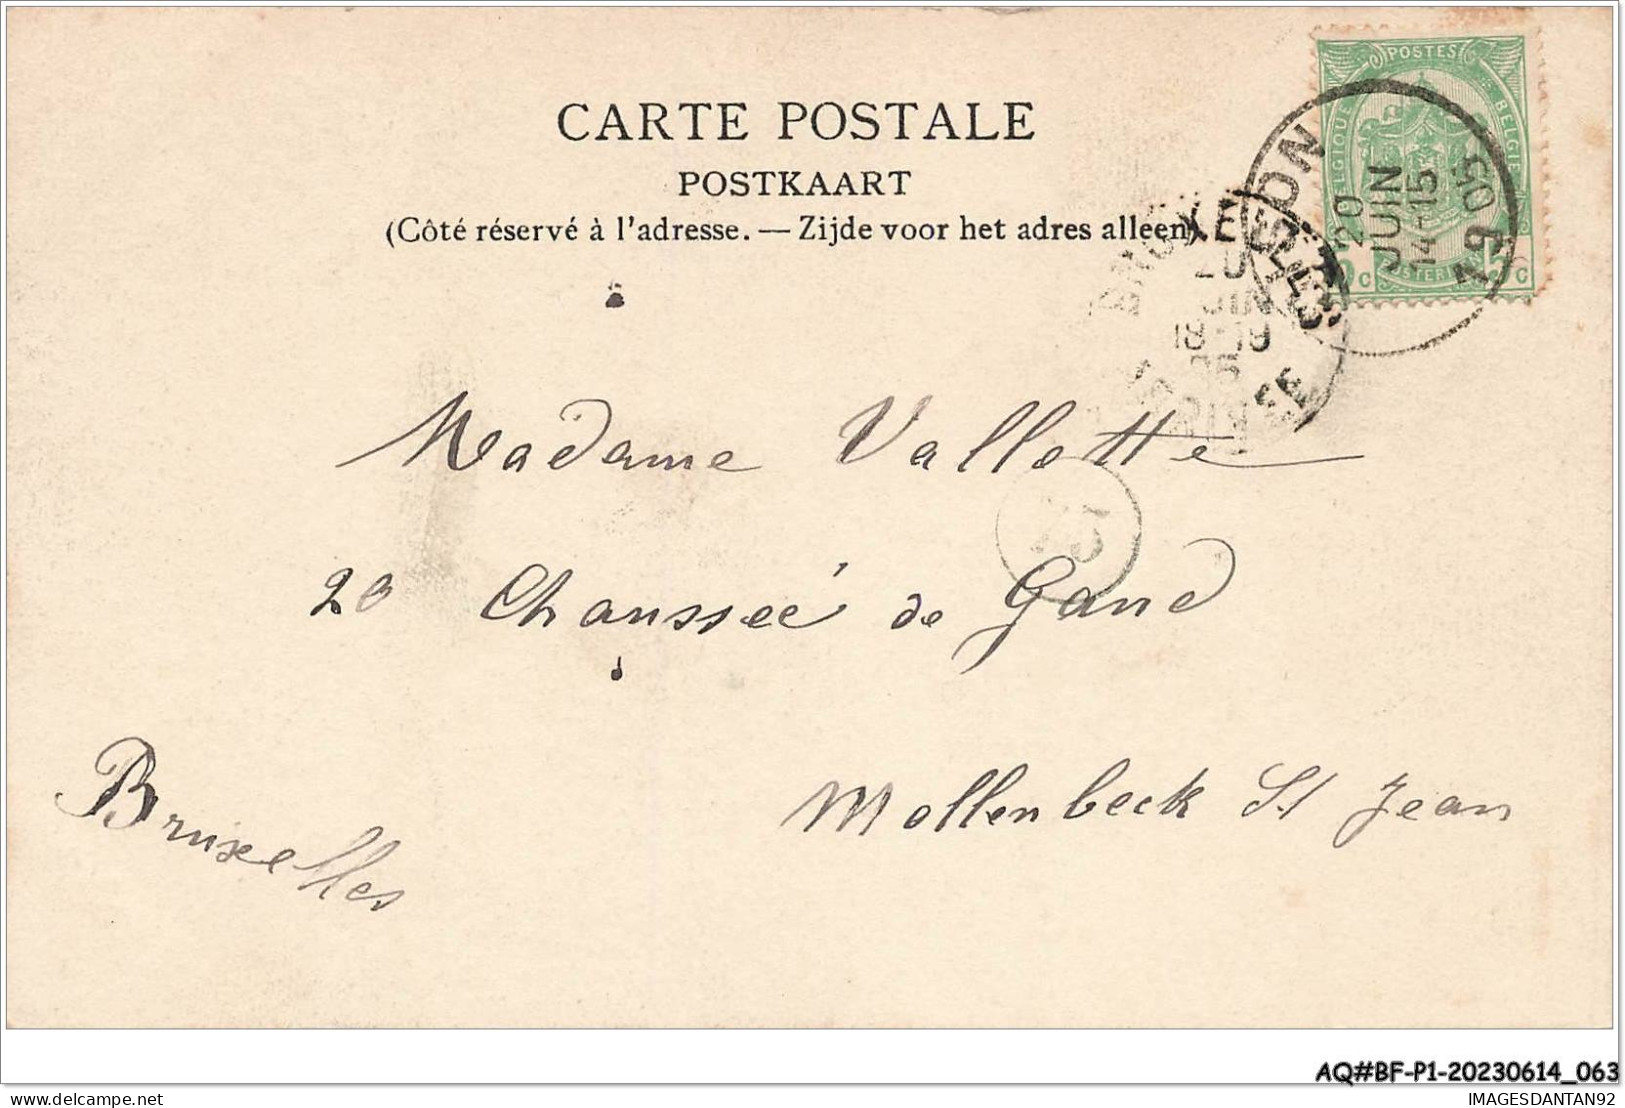 CARTE POSTALE
POSTKAART
(Côté réservé à l'adresse. — Zijde voor het adres alleen)
POSTES
BELGIQUE
BELGIE
20
JUIN
14-15
1905
BRUXELLES
20
JUIN
18-19
05
ARRIVEE
Madame Vallette
20 Chausseé de Gand
Mollenbeck St Jean
Bruxelles
AQ#BF-P1-20230614_063
IMAGESDANTAN92